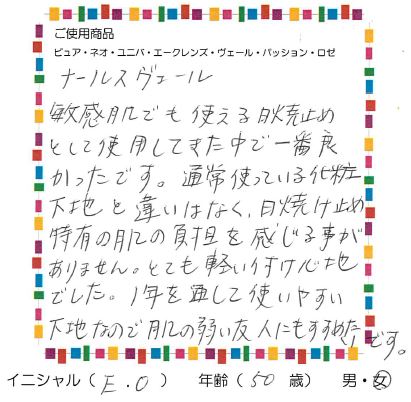 ご使用商品
ピュア・ネオ・ユニバ・エークレンズ・ヴェール・パッション・ロゼ
ナールスヴェール
敏感肌でも使える日焼止め
として使用してきた中で一番良
かったです。通常使っている化粧
下地と違いはなく、日焼け止め
特有の肌の負担を感じる事が
ありません。とても軽い付け心地
でした。1年を通して使いやすい
下地なので肌の弱い友人にもすすめたいです。
イニシャル（E.O） 年齢（50歳） 男・女